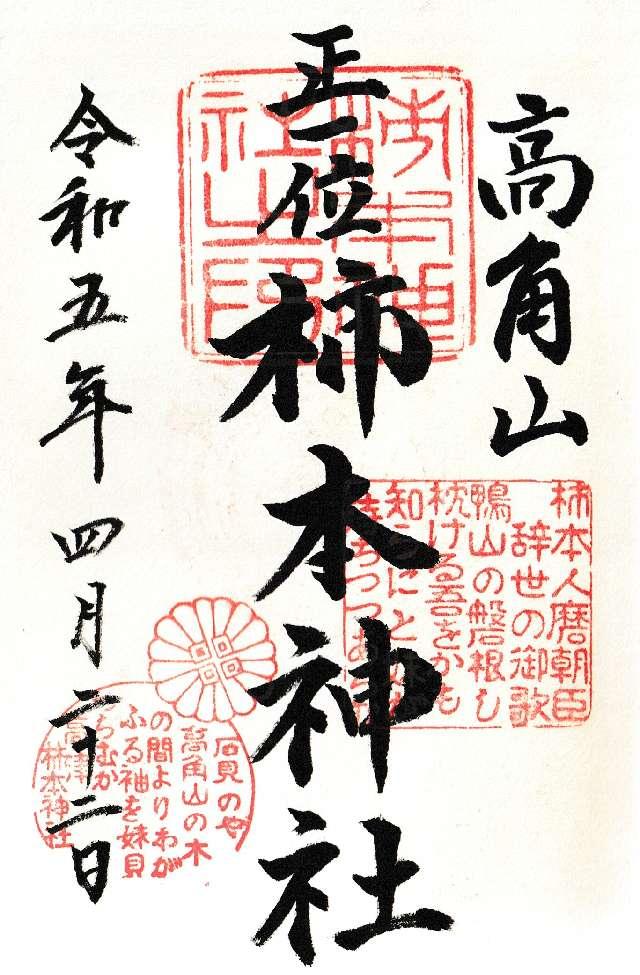 高角山
正一位
柿本神社
令和五年四月二十二日
柿本神
社之印
柿本人麿朝臣
辞世の御歌
鴨山の磐根し
枕ける吾をかも
知らにと妹が
石見のや
高角山の木
の間よりわが
ふる袖を妹見
つらむか
高津
柿本神社